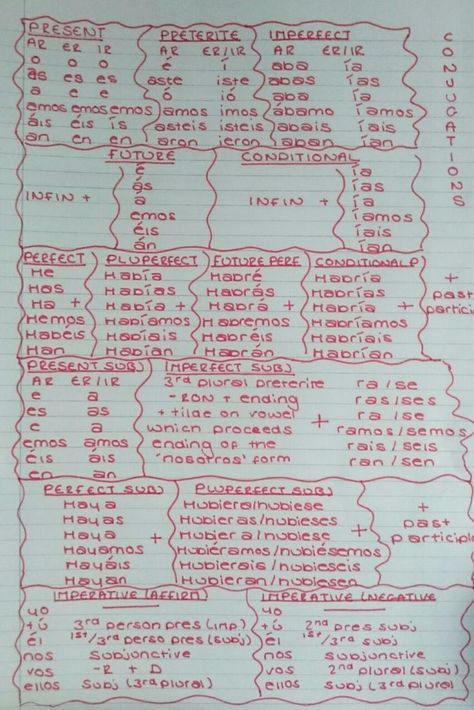 CONJUGATIONS
PRESENT
AR ER IR
o o o
as es es
a e e
amos emos emos
áis éis ís
an en en
PRETERITE
AR ER/IR
é í
aste iste
á ió
amos imos
asteis isteis
aron ieron
IMPERFECT
AR ER/IR
aba ía
abas ías
aba ía
ábamo íamos
abais íais
aban ían
FUTURE
INFIN +
é
ás
a
emos
éis
án
CONDITIONAL
INFIN +
ía
ías
ía
íamos
íais
ían
PERFECT
He
Has
Ha +
Hemos
Habéis
Han
PLUPERFECT
Había
Habías
Había +
Habíamos
Habíais
Habían
FUTURE PERF
Habré
Habrás
Habrá +
Habremos
Habréis
Habrán
CONDITIONAL P
Habría
Habrías
Habría +
Habríamos
Habríais
Habrían
+
past
particip
PRESENT SUBJ
AR ER/IR
e a
es as
e a
emos amos
éis áis
en an
IMPERFECT SUBJ
3rd plural preterite
-RON + ending
+ tilde on vowel
which proceeds
ending of the
'nosotros' form
+
ra/se
ras/ses
ra/se
ramos/semos
rais/seis
ran/sen
PERFECT SUBJ
Haya
Hayas
Haya +
Hayamos
Hayáis
Hayan
PLUPERFECT SUBJ
Hubiera/hubiese
Hubieras/hubieses
Hubiera/hubiese +
Hubiéramos/hubiésemos
Hubierais/hubieseis
Hubieran/hubiesen
+
past
participle
IMPERATIVE (AFFIRM)
yo
tú 3rd person pres (imp)
él 1st/3rd perso pres (subj)
nos subjunctive
vos -R + D
ellos subj (3rd plural)
IMPERATIVE (NEGATIVE
yo
tú 2nd pres subj
él 1st/3rd subj
nos subjunctive
vos 2nd plural (subj)
ellos subj (3rd plural)